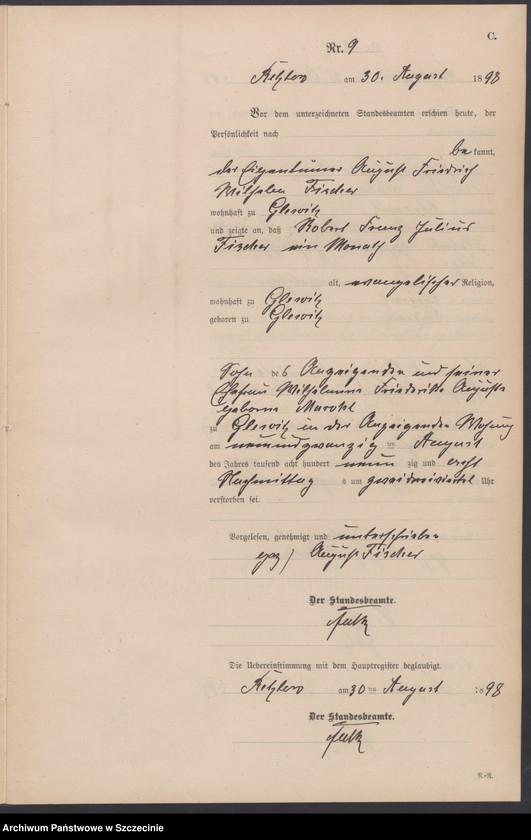 C.
Nr. 9
am 30. August 1898
Vor dem unterzeichneten Standesbeamten erschien heute, der
Persönlichkeit nach
be kannt,
der Eigentümer August Friedrich
Wilhelm Fischer
wohnhaft zu Glewitz
und zeigte an, daß Robert Franz Julius
Fischer ein Monath
alt, evangelischer Religion,
wohnhaft zu Glewitz
geboren zu Glewitz
Sohn des Anzeigenden und seiner
Ehefrau Wilhelmine Friederike Auguste
geborne
zu Glewitz in der Anzeigenden Wohung
am neunundzwanzig ten August
des Jahres tausend acht hundert neun zig und acht
Nachmittag s um zweidreiviertel Uhr
verstorben sei.
Vorgelesen, genehmigt und unterschrieben
gez) August Fischer
Der Standesbeamte.
Die Uebereinstimmung mit dem Hauptregister beglaubigt.
am 30 ten August 1898
Der Standesbeamte.
Archiwum Państwowe w Szczecinie